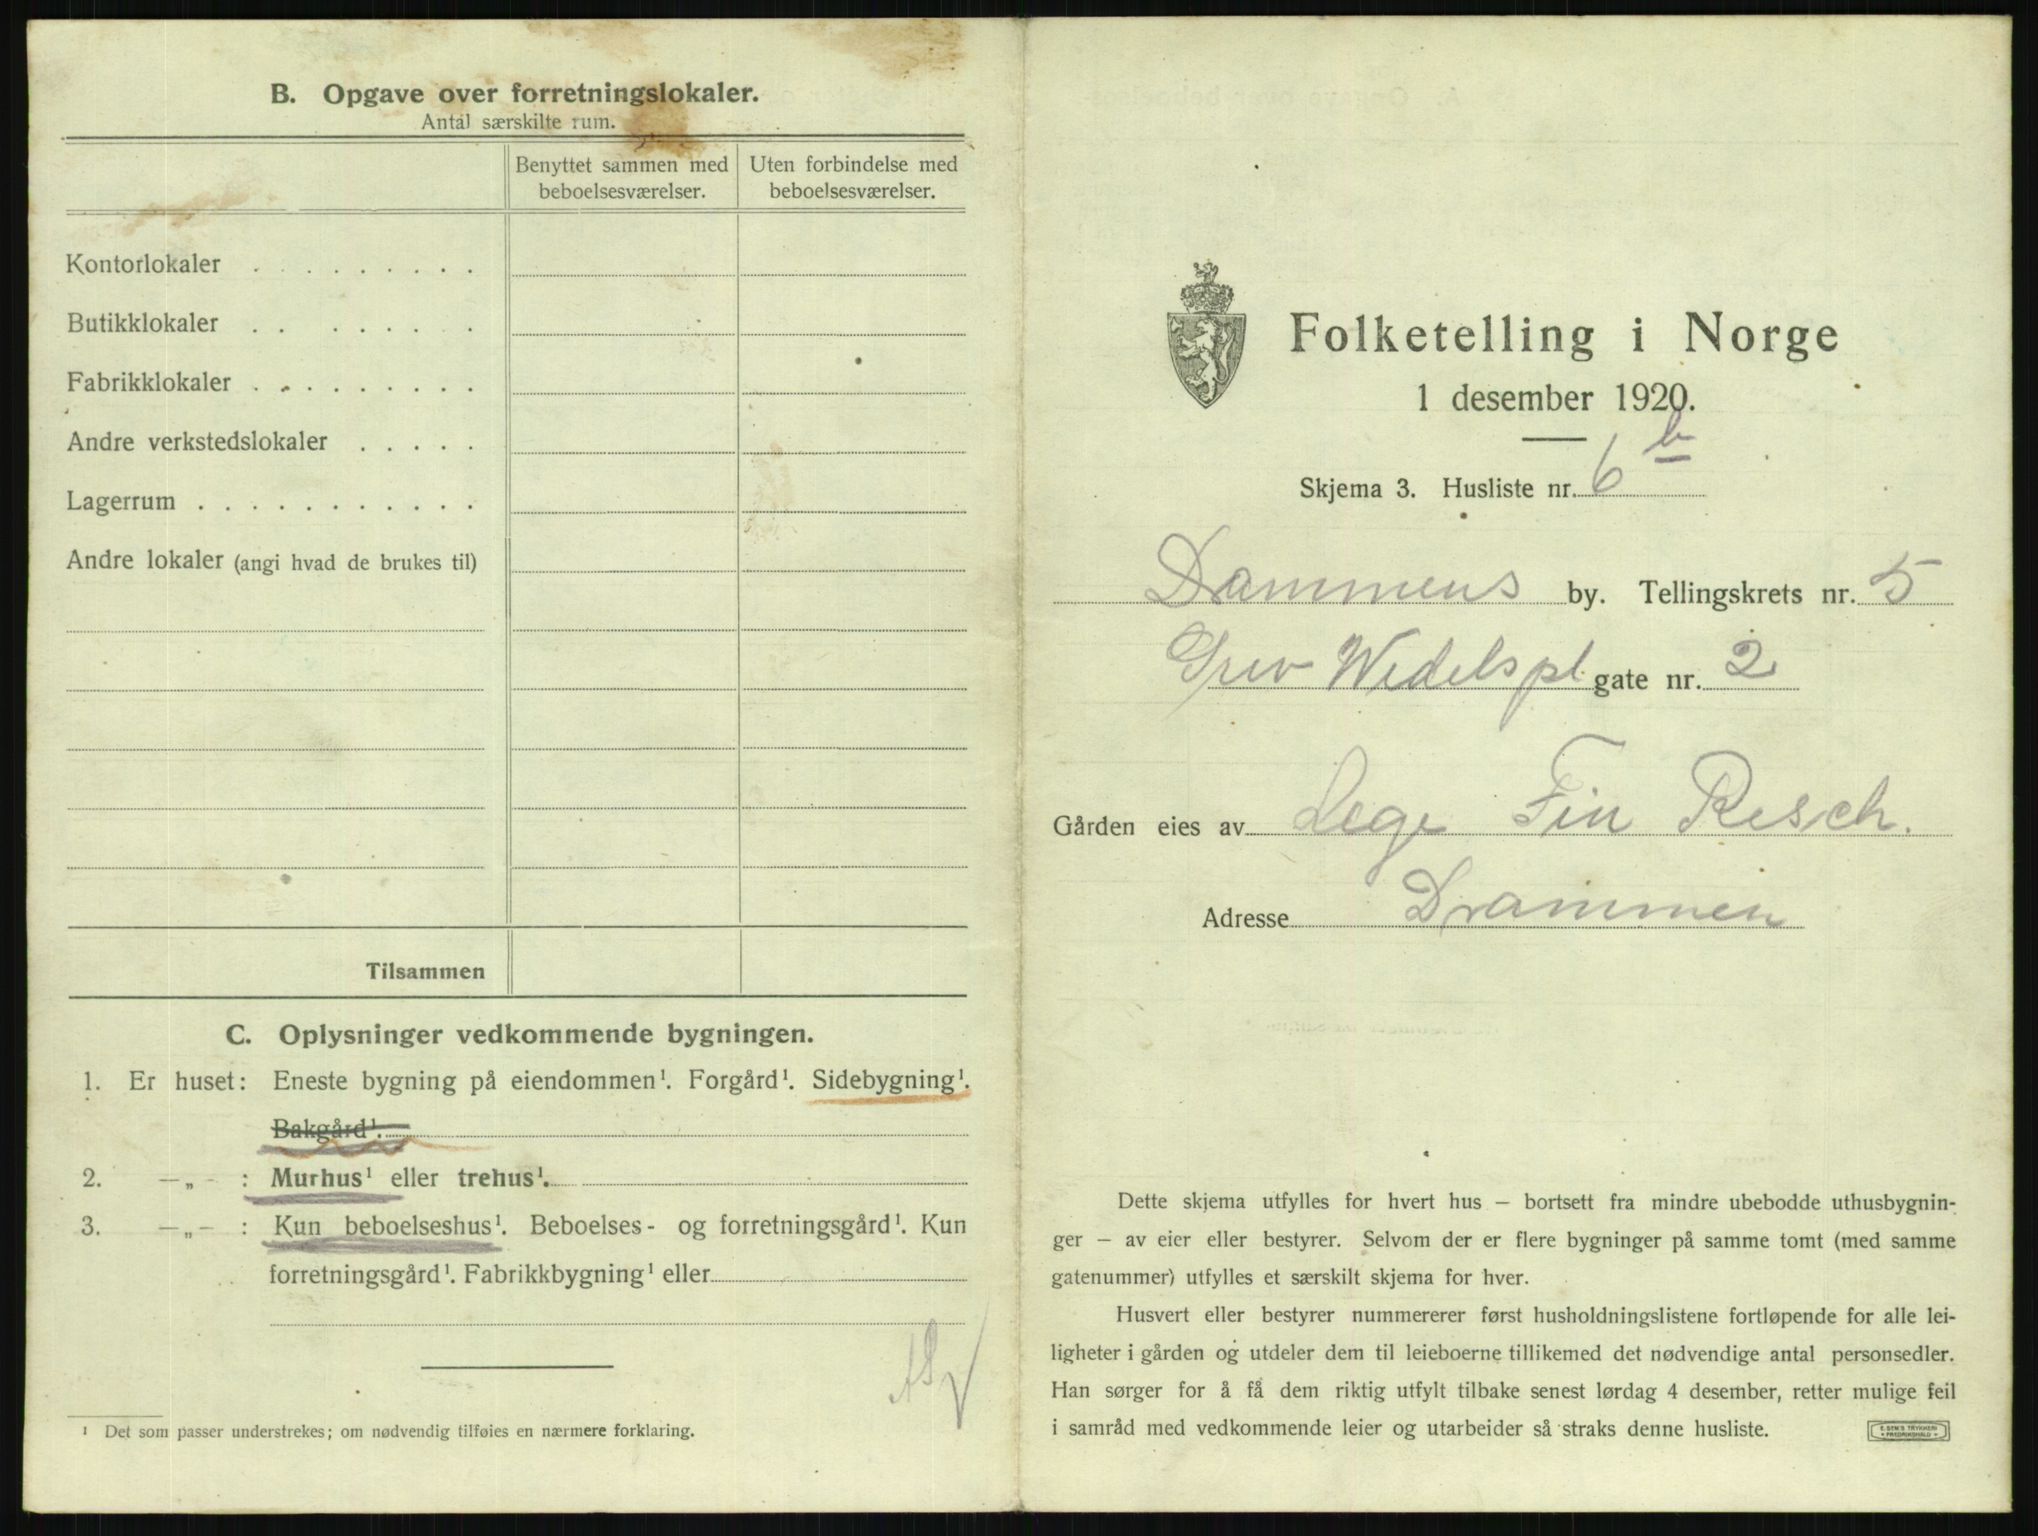 B. Opgave over forretningslokaler.
Antal særskilte rum.
Benyttet sammen med beboelsesværelser.
Uten forbindelse med beboelsesværelser.
Kontorlokaler . . . . . . . . .
Butikklokaler . . . . . . . .
Fabrikklokaler . . . . . . . . .
Andre verkstedslokaler . . . . .
Lagerrum . . . . . . . . . . .
Andre lokaler (angi hvad de brukes til)
Tilsammen
C. Oplysninger vedkommende bygningen.
1. Er huset: Eneste bygning på eiendommen¹. Forgård¹. Sidebygning¹.
Bakgård¹.
2. —„— : Murhus¹ eller trehus¹.
3. —„— : Kun beboelseshus¹. Beboelses- og forretningsgård¹. Kun
forretningsgård¹. Fabrikkbygning¹ eller
¹ Det som passer understrekes; om nødvendig tilføies en nærmere forklaring.
Folketelling i Norge
1 desember 1920.
Skjema 3. Husliste nr. 6 b
Drammens by. Tellingskrets nr. 5
Grev Wedelspl. gate nr. 2
Gården eies av Lege Fin Resch.
Adresse Drammen
Dette skjema utfylles for hvert hus — bortsett fra mindre ubebodde uthusbygnin-
ger — av eier eller bestyrer. Selvom der er flere bygninger på samme tomt (med samme
gatenummer) utfylles et særskilt skjema for hver.
Husvert eller bestyrer nummererer først husholdningslistene fortløpende for alle lei-
ligheter i gården og utdeler dem til leieboerne tillikemed det nødvendige antal personsedler.
Han sørger for å få dem riktig utfylt tilbake senest lørdag 4 desember, retter mulige feil
i samråd med vedkommende leier og utarbeider så straks denne husliste.